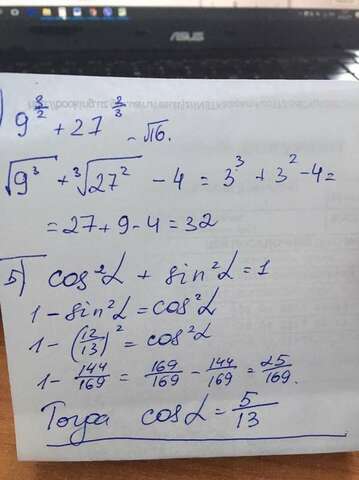 ASUS
9^(3/2) + 27^(2/3) - √16.
√9³ + ³√27² - 4 = 3³ + 3² - 4 =
= 27 + 9 - 4 = 32
5) cos²α + sin²α = 1
1 - sin²α = cos²α
1 - (12/13)² = cos²α
1 - 144/169 = 169/169 - 144/169 = 25/169.
Тогда cosα = 5/13